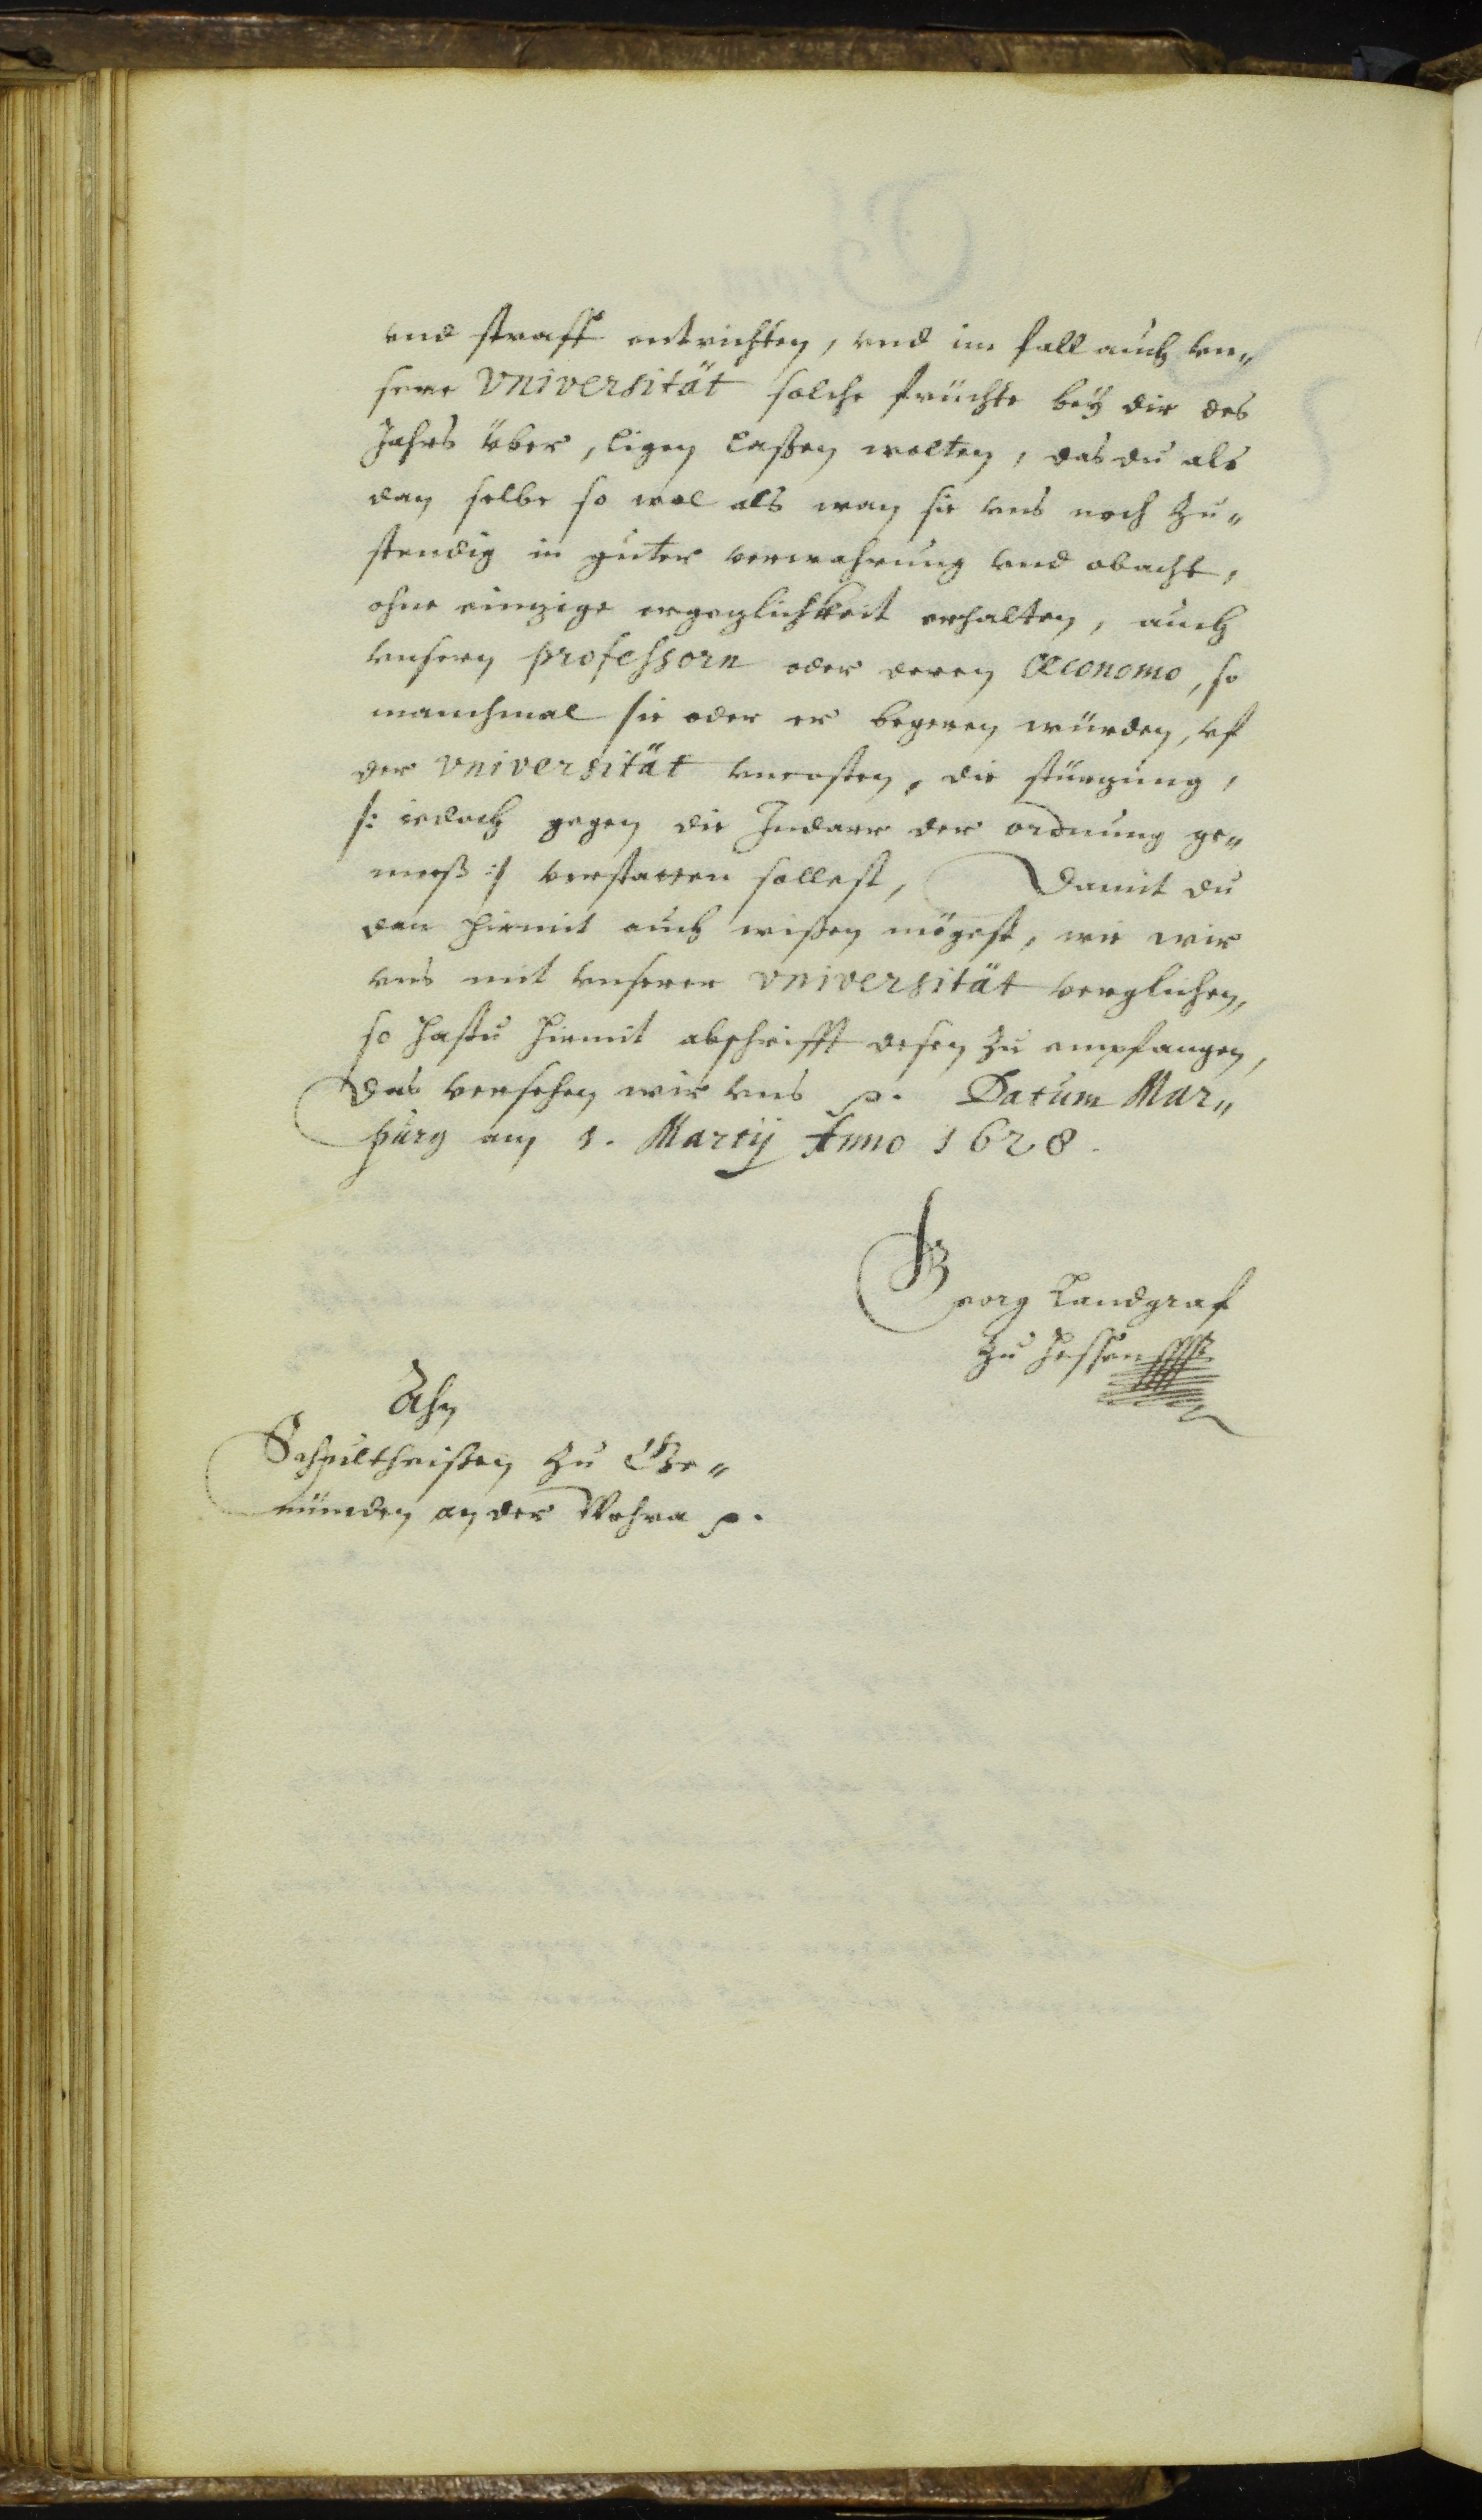 vnd straff entrichten, vnd im fall auch vn„
sere Vniversität solche früchte beÿ dir des
Jahrs über, ligen laßen wolten, das du als
dan selbe so wol als wan sie vns noch zu„
stendig in guter verwahrung vnd obacht,
ohne einzige ergezlichkeit erhalten, auch
vnsern professorn oder deren Œconomo, so
manchmal sie oder er begeren würden, vf
der Vniversität vncosten, die stürzung,
/: iedoch gegen die der ordnung ge„
meeß :/ verstatten sollest, Damit du
dan hiemit auch wißen mögest, wie wir
vns mit vnserer Vniversität verglichen,
so hastu hiemit abschrifft desen zu empfangen,
Das versehen wir vns p. Datum Mar„
purg am 1. Martij Anno 1628.
Georg Landgraf
zu Hessen
Ahn
Schultheißen zu Ge„
münden an der Wohra p.